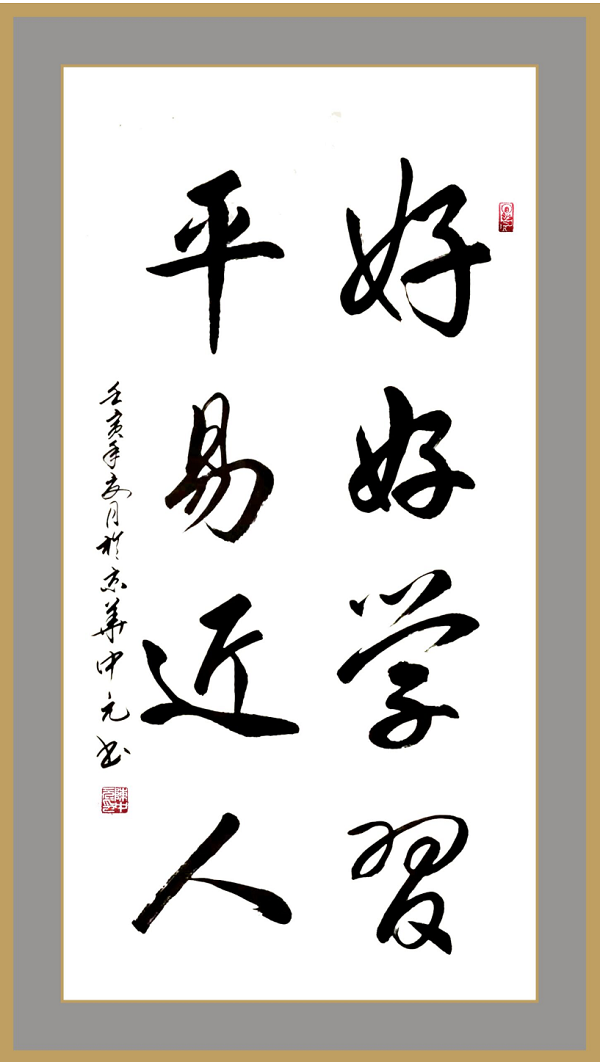 好好学習
平易近人
壬寅年夏月於京華中元书